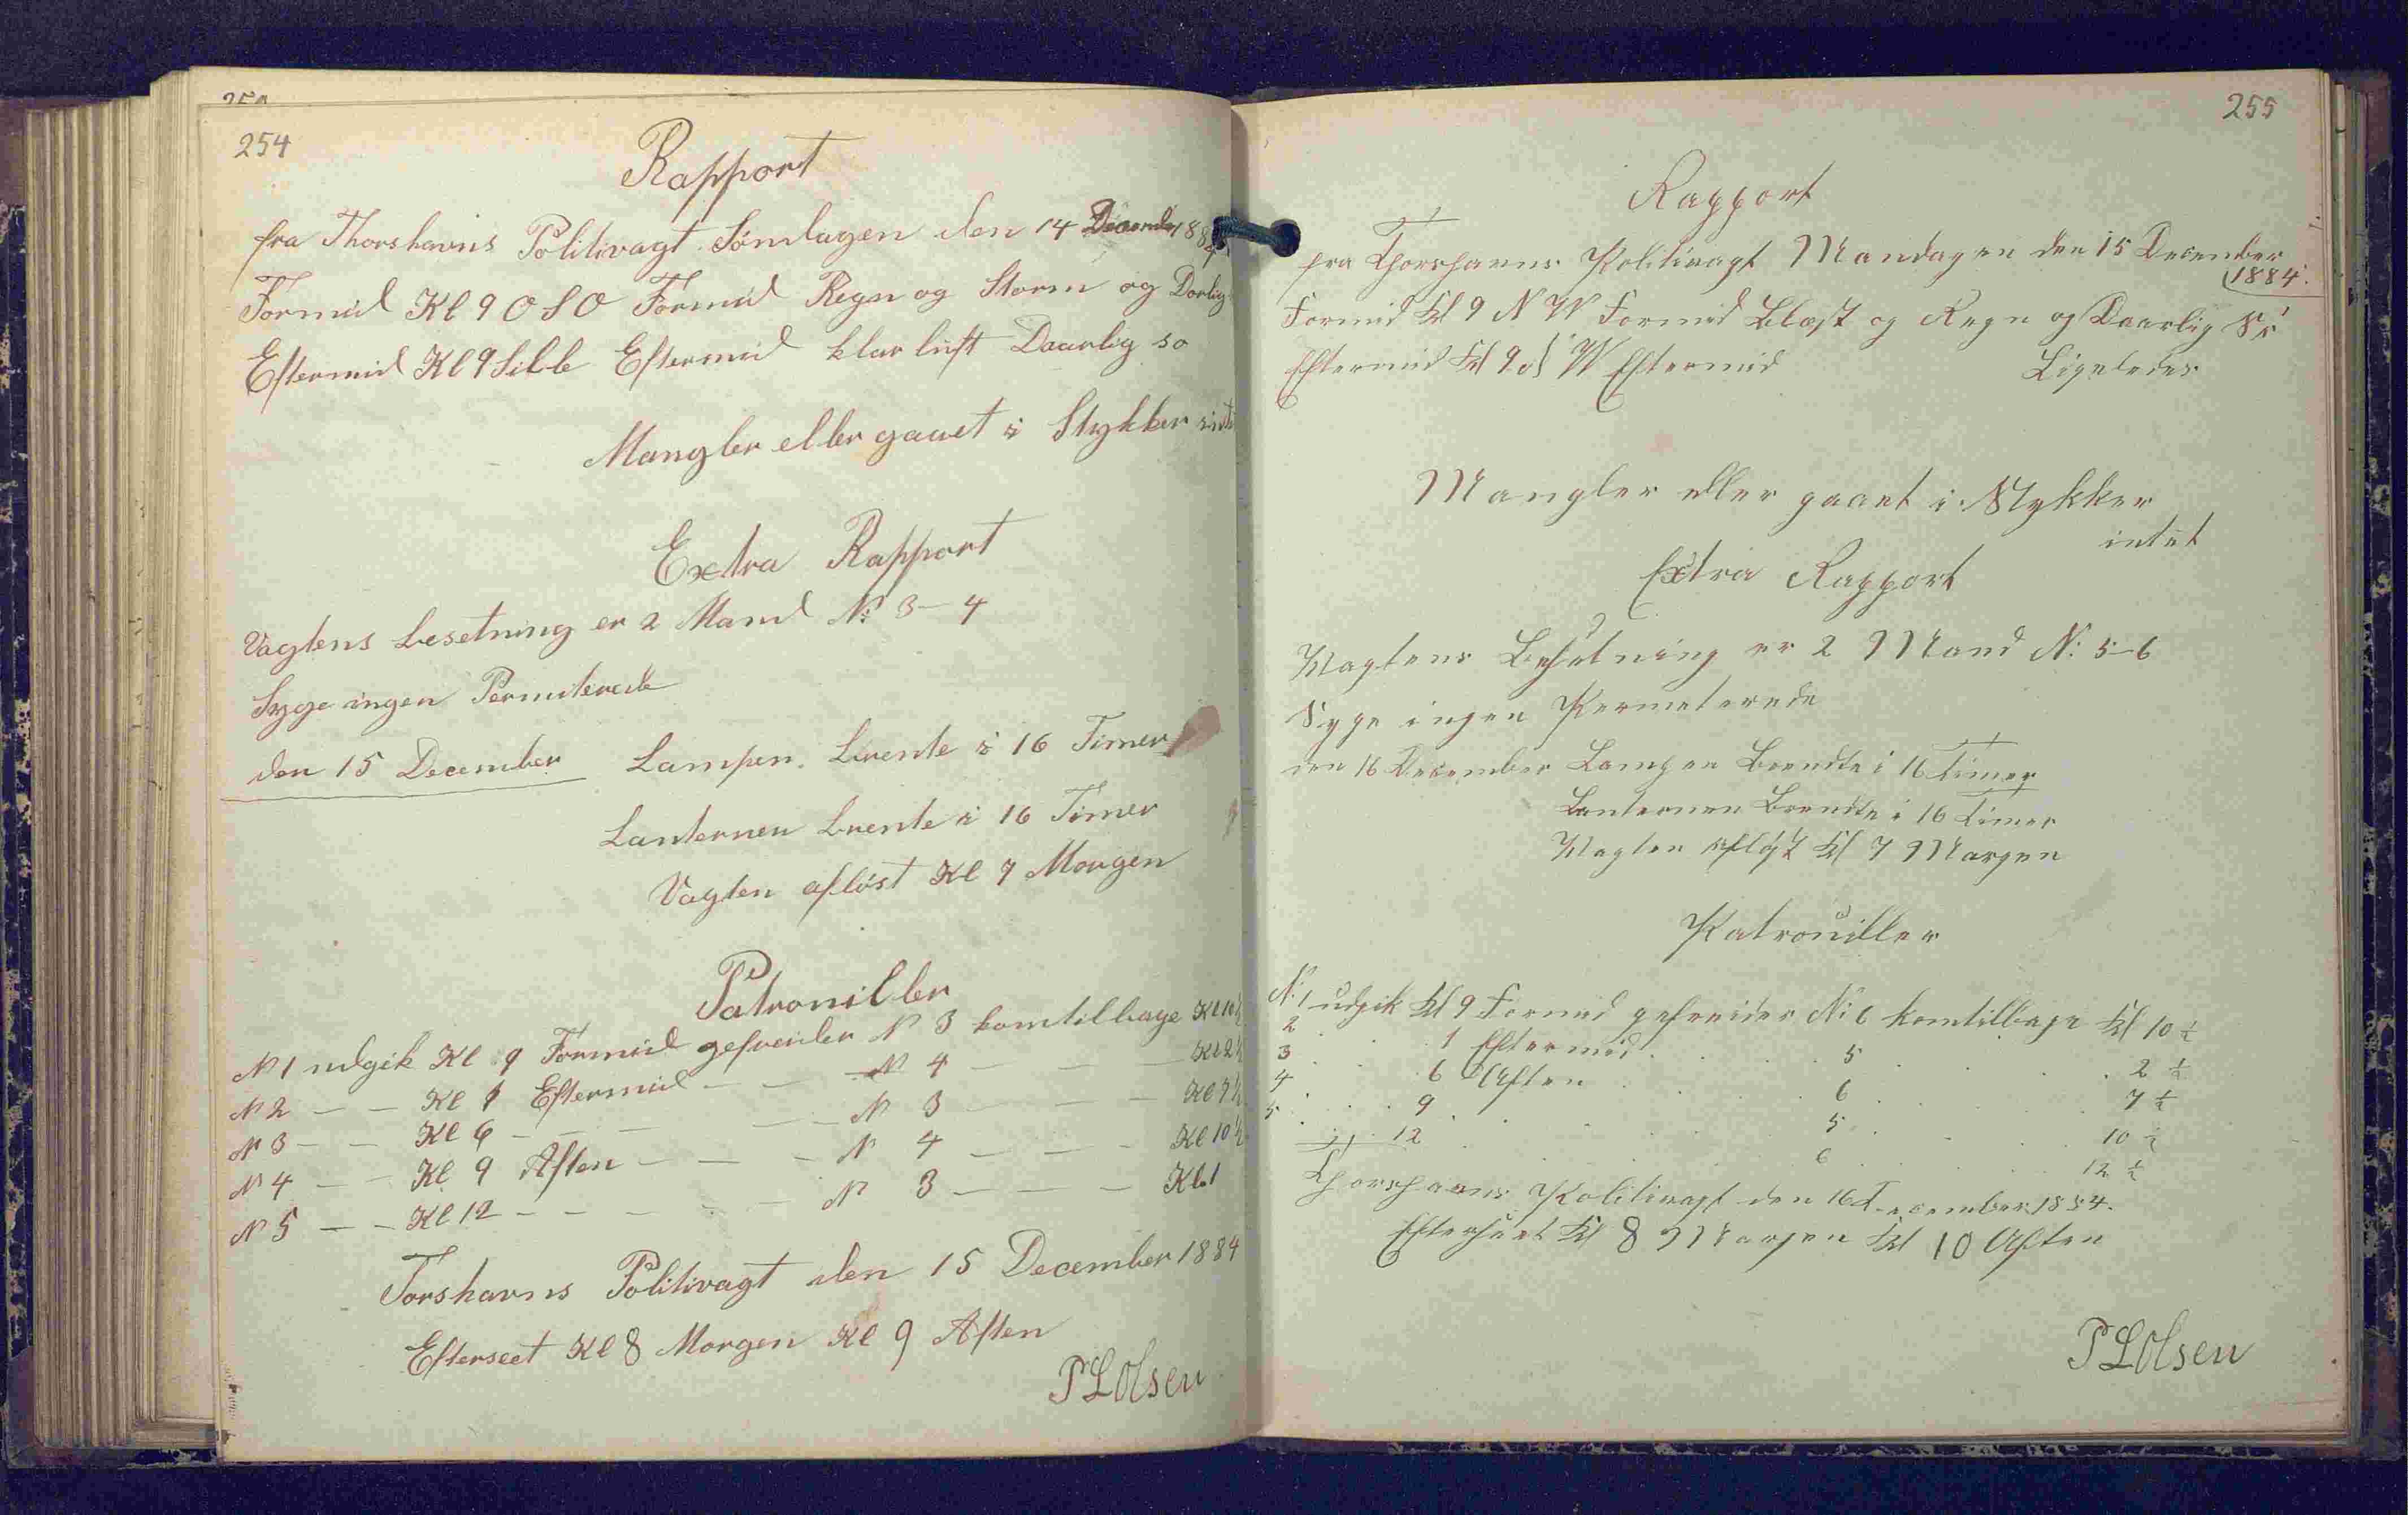 254
Rapport
fra Thorshavns Politivagt Søndagen den 14 December 1884
Formid Kl 9 O S O Formid Regn og Storm og Dorlig
Eftermid Kl 9 Sille Eftermid klar luft Daarlig so
Mangler eller gaaet i Stykker
Extra Rapport
Vagtens besetning er 2 Mand No 3 - 4
Syge ingen Permiterede
den 15 December Lampen brente i 16 Timer
Lanternen brente i 16 Timer
Vagten afløst Kl 7 Morgen
Patroniller
N 1 udgik Kl 9 Formid gefreider N 3 komtilbage Kl 10½
N 2 — — Kl 1 Eftermid — — N 4 — — — Kl 2½
N 3 — — Kl 6 — — — — N 3 — — — Kl 7½
N 4 — — Kl 9 Aften — — — N 4 — — — Kl 10½
N 5 — — Kl 12 — — — — — N 3 — — — Kl 1
Torshavns Politivagt den 15 December 1884
Efterseet Kl 8 Morgen Kl 9 Aften
P L Olsen
255
Rapport
fra Thorshavns Politivagt Mandagen den 15 December
1884.
Formid Kl 9 N W Formid Blæst og Regn og Daarlig Sö
Eftermid Kl 9 W Eftermid Ligeledes
Mangler eller gaaet i Stykker
intet
Extra Rapport
Vagtens Besetning er 2 Mand N: 5-6
Syge ingen Permeterede
den 16 December Lampen Brendte i 16 Timer
Lanternen Brendte i 16 Timer
Vagten afløst Kl 7 Morgen
Patrouiller
N: 1 udgik Kl 9 Formid gefreider N: 6 komtilbage Kl 10 ½
2 . . . 1 Eftermid . . . 5 . . . 2 ½
3 . . . 6 Aften . . . 6 . . . 7 ½
4 . . . 9 . . . 5 . . . 10 ½
5 . . . 12 . . . 6 . . . 12 ½
Thorshavns Politivagt den 16 December 1884.
Efterseet Kl 8 Morgen Kl 10 Aften
P L Olsen